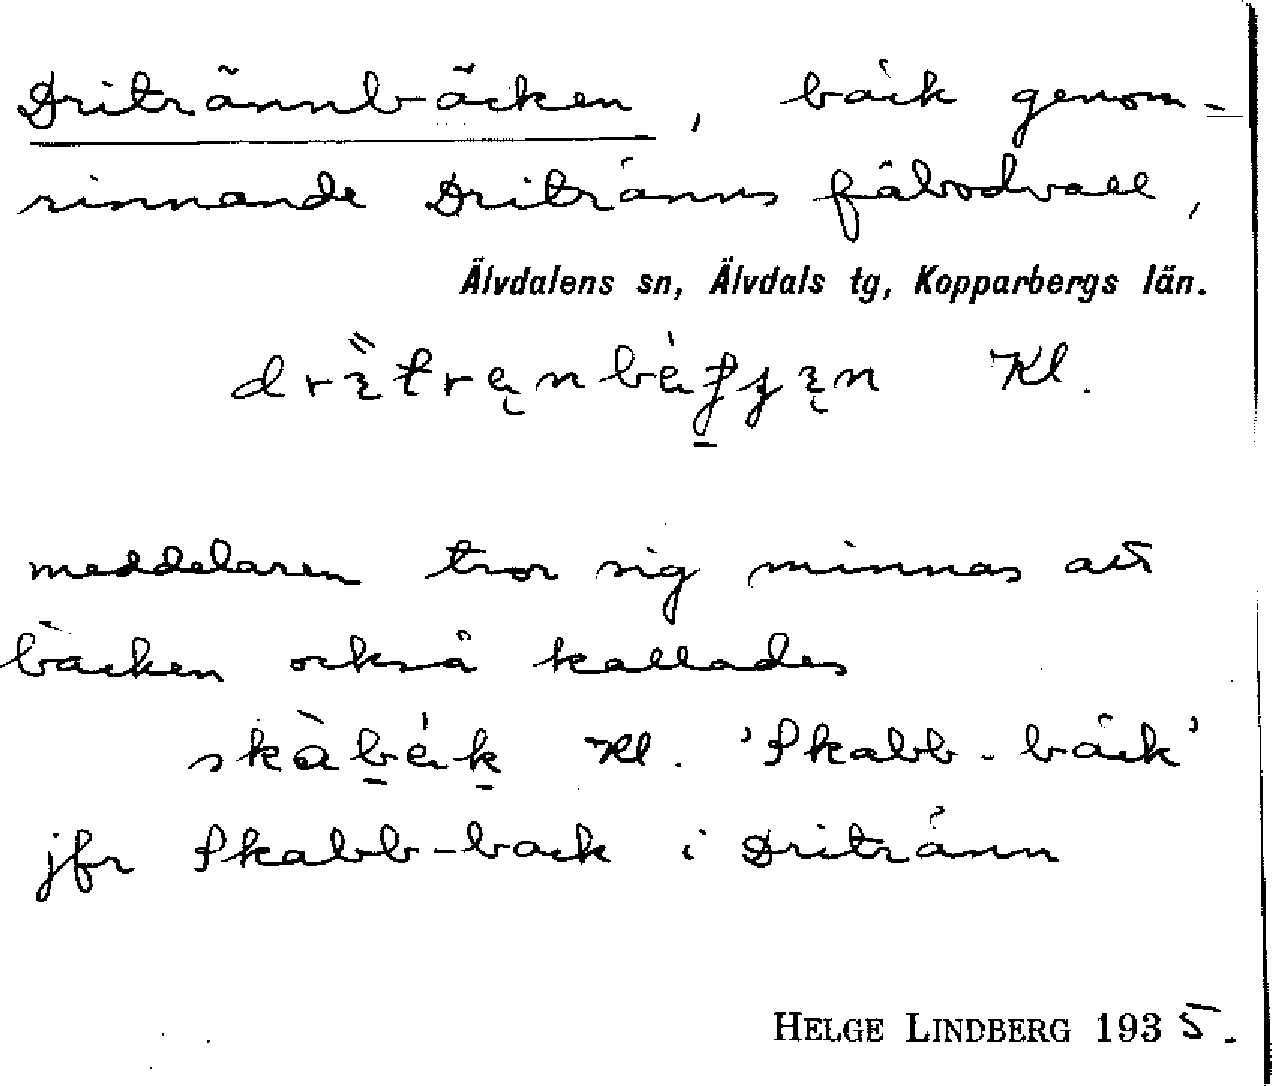 Tritrännbäcken, bäck genom-
rinnande Dritränns fäbodvall,
Älvdalens sn, Älvdals tg, Kopparbergs län.
Kl.
meddelaren tror sig minnas att
bäcken också kallades
skàbèk Kl. 'Skabb-bäck'
jfr Skabb-back i Dritränn
HELGE LINDBERG 1935.